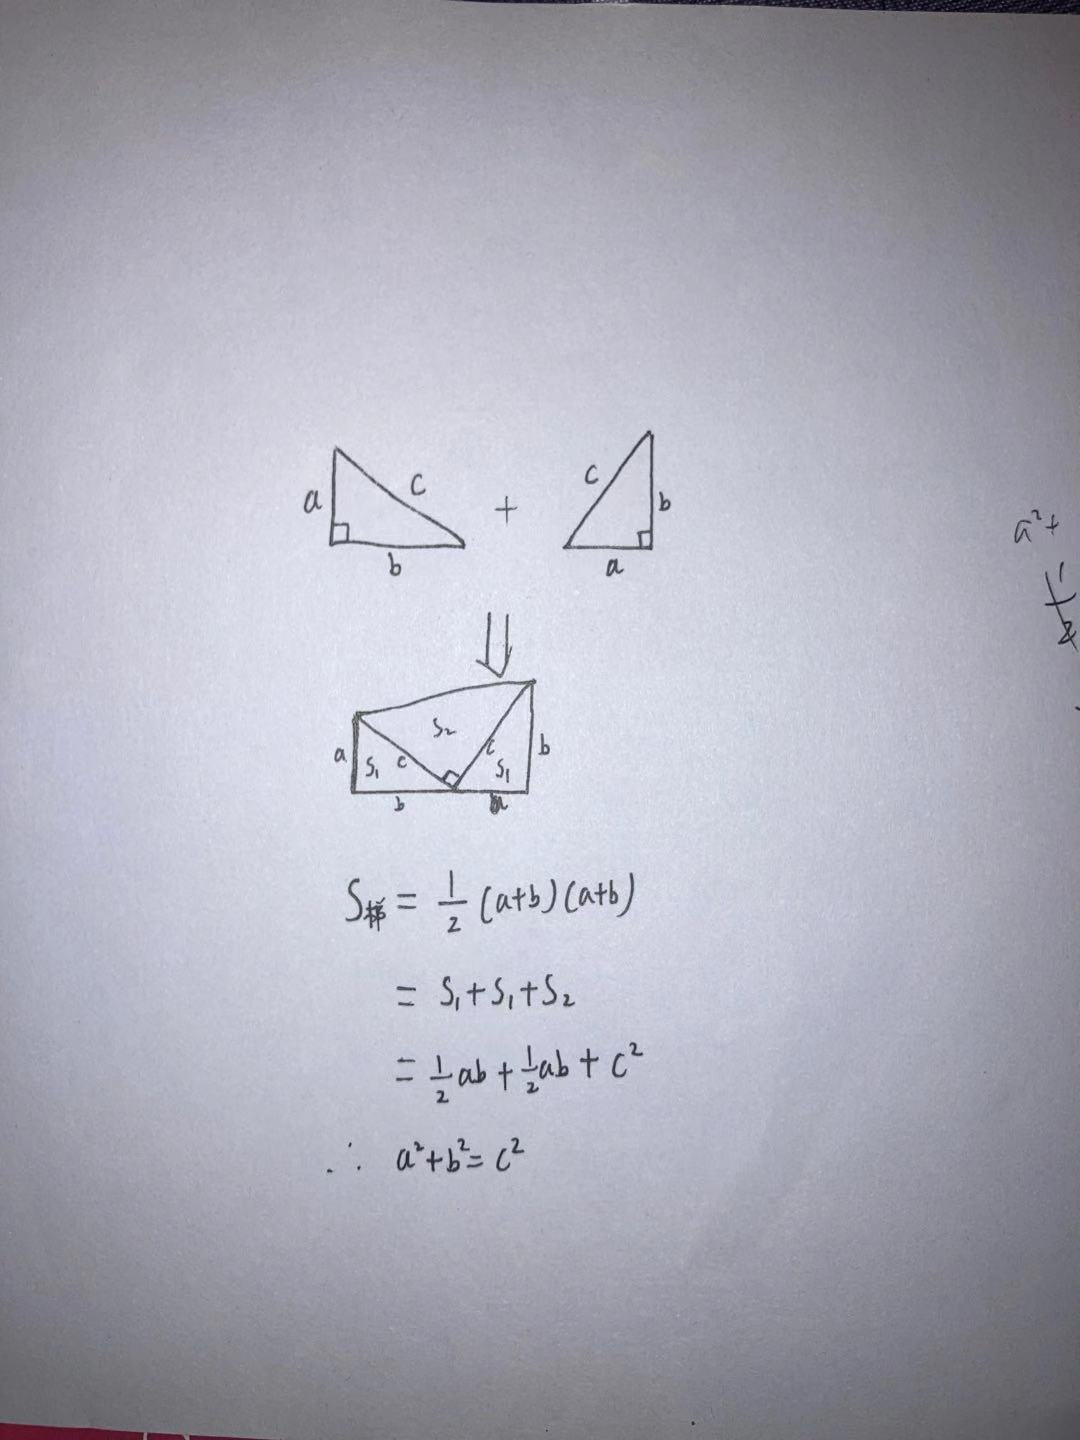 a c b + c b a
⇓
a S₁ c b S₂ c S₁ b a
S梯 = 1/2 (a+b)(a+b)
= S₁+S₁+S₂
= 1/2 ab + 1/2 ab + c²
∴ a²+b²= c²
a²+
1/2